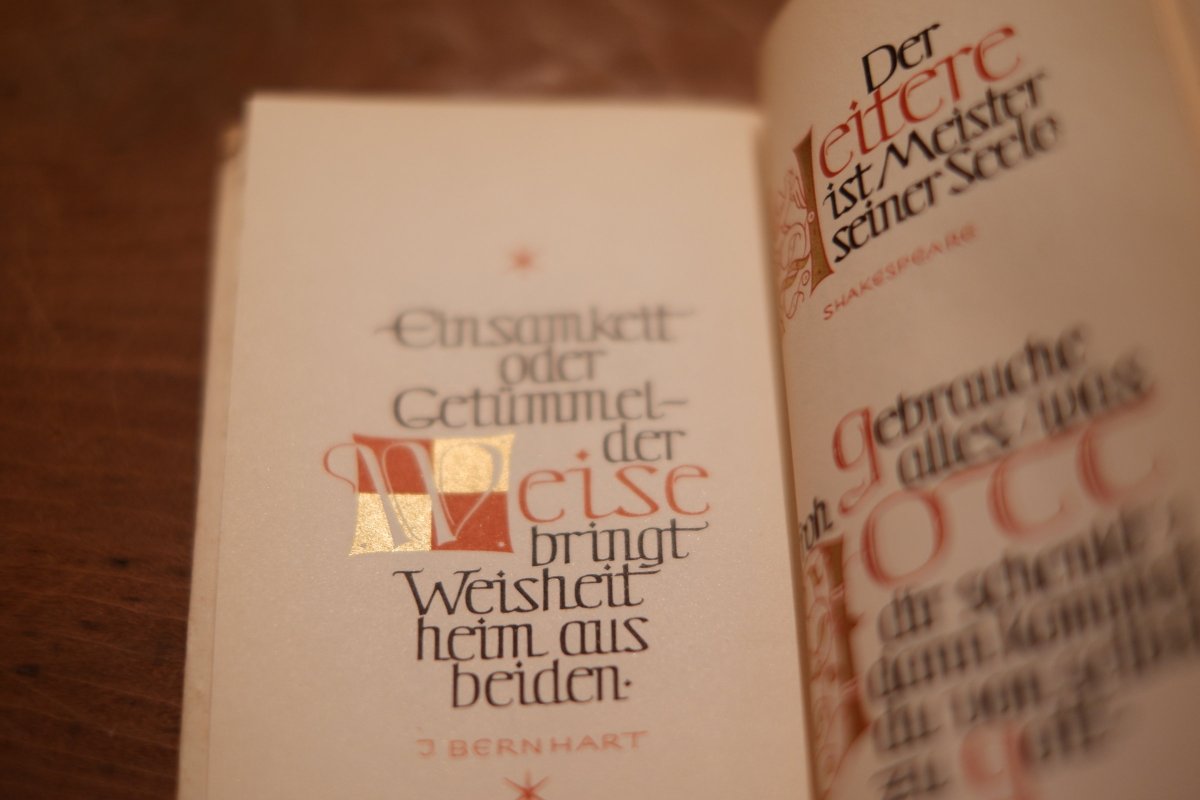 Einsamkeit
oder
Getümmel-
der
Weise
bringt
Weisheit
heim aus
beiden.
J BERNHART
Der
Heitere
ist Meister
seiner Seele
SHAKESPEARE
gebrauche
alles/was
Gott
dir schenkt/
dann kommst
du von selbst
zu Gott